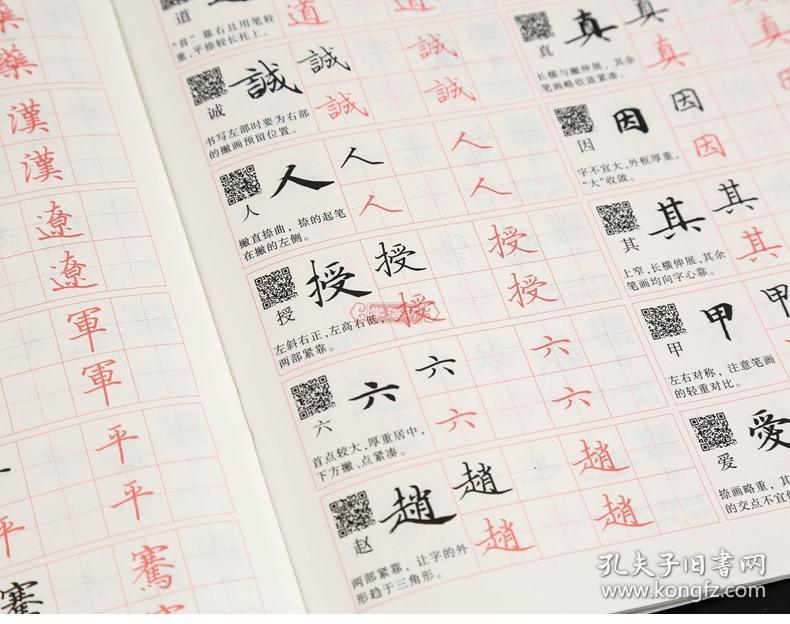 藥
藥
漢
漢
遼
遼
軍
軍
平
平
平
騫
騫
道
道
道
"首"靠右且用笔较
重,平捺较长托上。
诚
誠 誠 誠
誠 誠
书写左部时要为右部
的撇画预留位置。
人
人 人 人
人 人
撇直捺曲,捺的起笔
在撇的左侧。
授
授 授 授
授 授
左斜右正,左高右低,
两部紧靠。
六
六 六 六
六 六
首点较大,厚重居中,
下方撇、点紧凑。
赵
趙 趙 趙
趙 趙
两部紧靠,让字的外
形趋于三角形。
真
真 真 真
真
长横与撇伸展,其余
笔画略收敛紧凑。
因
因 因
因
字不宜大,外框厚重,
"大"收敛。
其
其 其
其
上窄,长横伸展,其余
笔画均向字心靠。
甲
甲 甲
左右对称,注意笔画
的轻重对比。
爱
愛
捺画略重,其
的交点不宜
孔夫子旧书网
www.kongfz.com